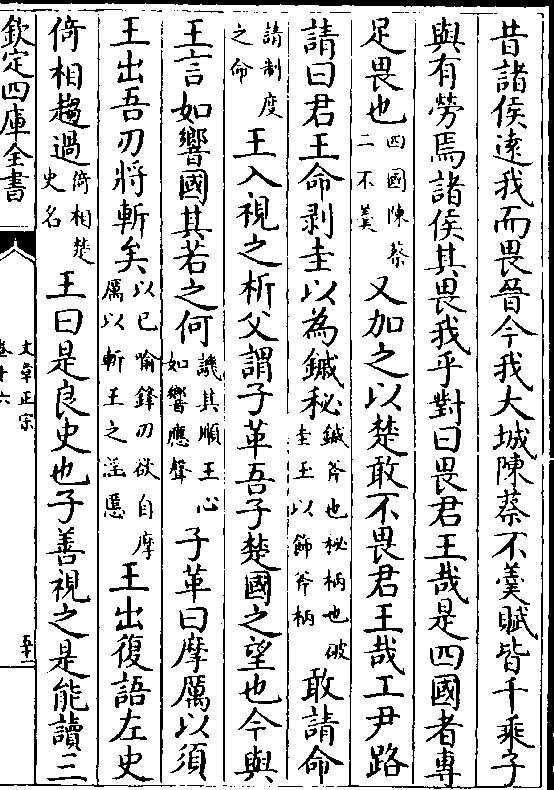 昔諸侯逺我而畏晉今我大城陳蔡不羮賦皆千乘子
與有勞焉諸侯其畏我乎對曰畏君王哉是四國者專
足畏也四國陳蔡二不羮又加之以楚敢不畏君王哉工尹路
請曰君王命剥圭以為鏚秘鏚斧也秘柄也破圭玉以飾斧柄敢請命
請制度之命王入視之析父謂子革吾子楚國之望也今與
王言如響國其若之何譏其順王心如響應聲子革曰摩厲以須
王出吾刃將斬矣以己喻鋒刃欲自摩厲以斬王之淫慝王出復語左史
倚相趨過倚相楚史名王曰是良史也子善視之是能讀三
欽定四庫全書
文章正宗
卷十六